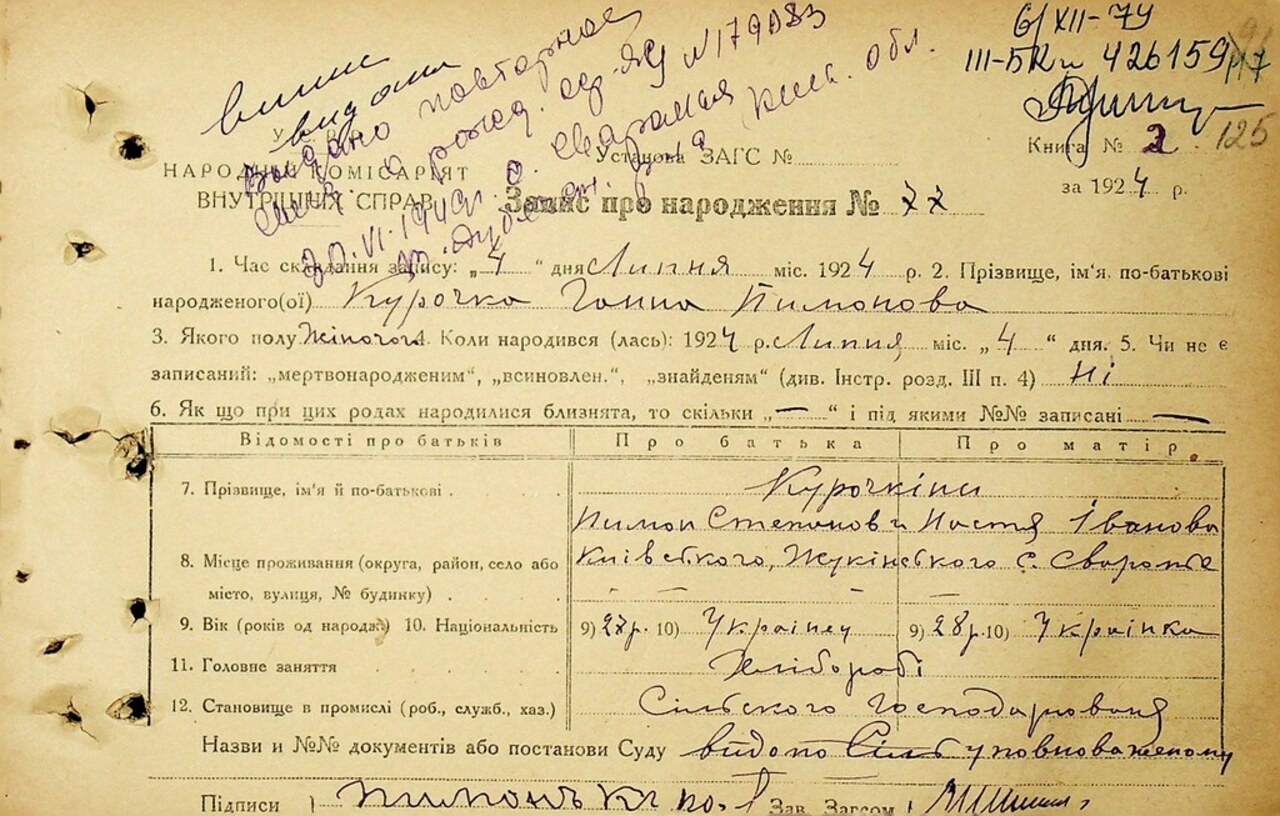 6/XII-74
III-БК № 426159
125
випис
видано
Выдано повторное
свид. о рожд. сер. ЯЦ №179083
30.VI.1949г. с. Сваромья
Киев. обл.
У.С.Р.Р.
НАРОДНІЙ КОМІСАРІЯТ
ВНУТРІШНІХ СПРАВ
Установа ЗАГС №
Книга № 2
за 1924 р.
Запис про народження № 77
1. Час складання запису: „4“ дня Липня міс. 1924 р. 2. Прізвище, ім'я, по-батькові
народженого(ої) Курочка Ганна Пимонова
3. Якого полу Жіночого 4. Коли народився (лась): 1924 р. Липня міс. „4“ дня. 5. Чи не є
записаний: „мертвонародженим“, „всиновлен.“, „знайденям“ (див. Інстр. розд. III п. 4) Ні
6. Як що при цих родах народилися близнята, то скільки „—“ і під якими №№ записані —
Відомості про батьків Про батька Про матір
7. Прізвище, ім'я й по-батькові Курочкіни
Пимон Степанов и Настя Іванова
8. Місце проживання (округа, район, село або Київського, Жукінського с. Сваромье
місто, вулиця, № будинку)
9. Вік (років од народж.) 10. Національність 9) 28р. 10) Українец 9) 28р. 10) Українка
11. Головне заняття Хлібороби
12. Становище в промислі (роб., служб., хаз.) Сільского Господарованя
Назви и №№ документів або постанови Суду видано Сіль уповноваженому
Підписи Зав. Загсом